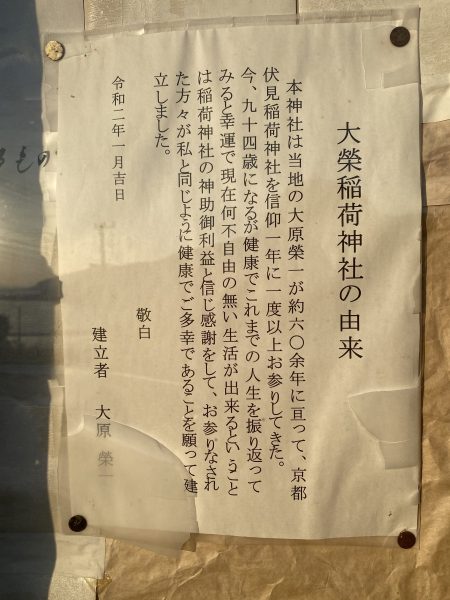 大榮稲荷神社の由来
本神社は当地の大原榮一が約六〇余年に亘って、京都
伏見稲荷神社を信仰一年に一度以上お参りしてきた。
今、九十四歳になるが健康でこれまでの人生を振り返って
みると幸運で現在何不自由の無い生活が出来るということ
は稲荷神社の神助御利益と信じ感謝をして、お参りなされ
た方々が私と同じように健康でご多幸であることを願って建
立しました。
敬白
令和二年一月吉日
建立者 大原 榮一
るもの